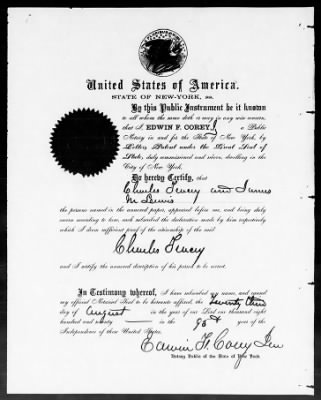 United States of America.
STATE OF NEW-YORK, ss.
By this Public Instrument be it known
to all whom the same doth or may in any wise concern,
that I, EDWIN F. COREY, Jr a Public
Notary in and for the State of New York, by
Letters Patent under the Great Seal of
State, duly commissioned and sworn, dwelling in the
City of New York.
Do hereby Certify, that
Charles and James
M Lewis
the persons named in the annexed paper, appeared before me, and being duly
sworn according to law, and subscribed the declaration made by them respectively
which I deem sufficient proof of the citizenship of the said
Charles
and I certify the annexed description of his person to be correct.
In Testimony whereof, I have subscribed my name, and caused
my official Notarial Seal to be hereunto affixed, the twenty third
day of August in the year of our Lord one thousand eight
hundred and ninety in the 95th year of the
Independence of these United States.
Edwin F. Corey Jr
Notary Public of the State of New York.